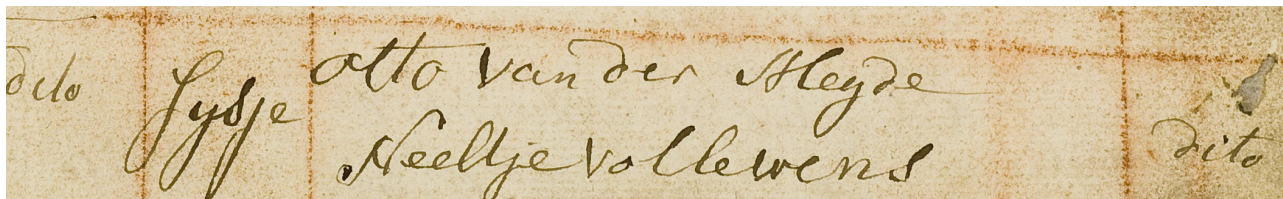 dito Sysje Otto van der Heyde
Neeltje Vollewens dito